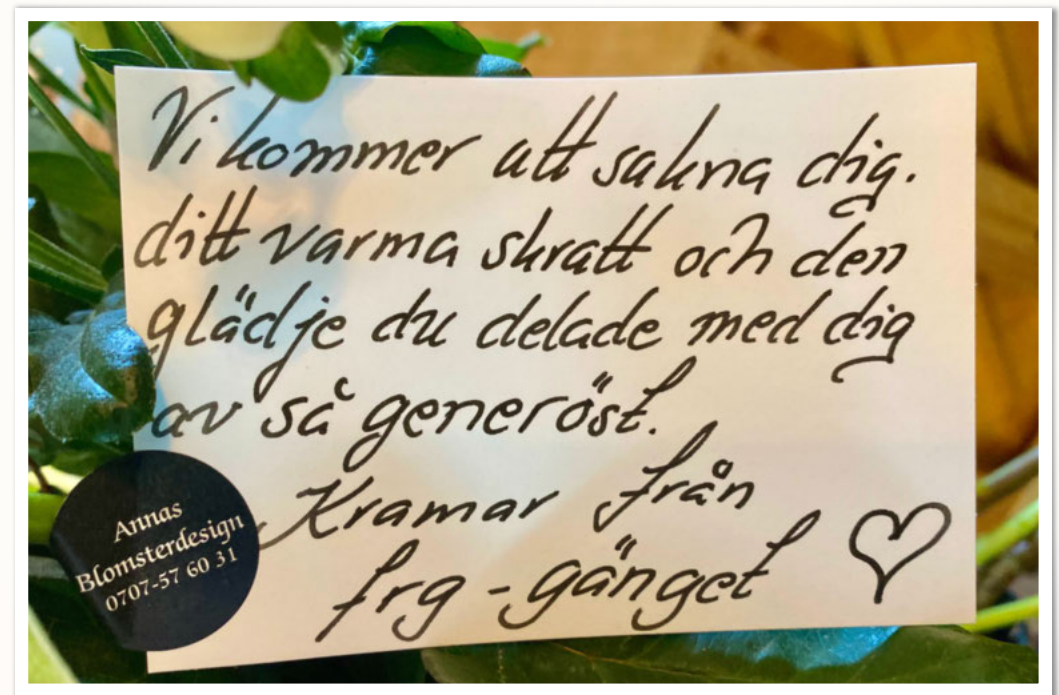 Vi kommer att sakna dig.
ditt varma skratt och den
glädje du delade med dig
av så generöst.
Kramar från
frg-gänget
Annas
Blomsterdesign
0707-57 60 31